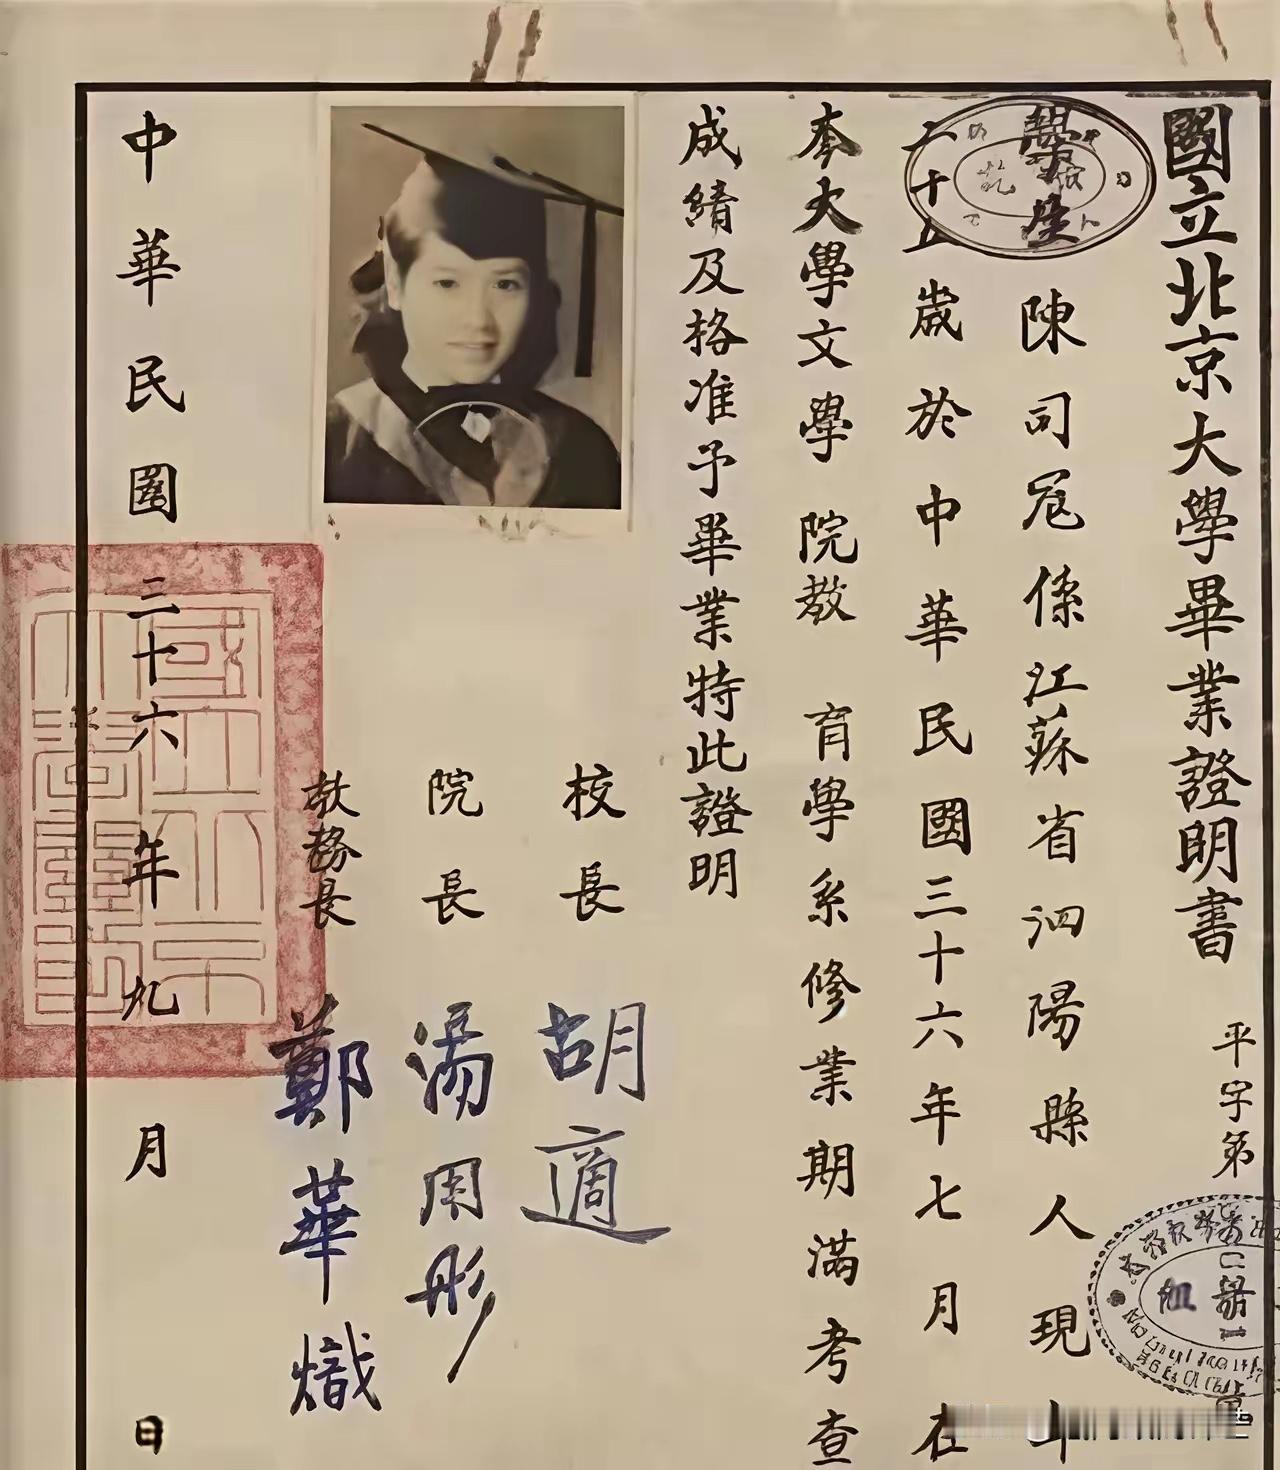 國立北京大學畢業證明書
平字第
學生
陳司冠係江蘇省泗陽縣人現年
二十五歲於中華民國三十六年七月在
本大學文學院教育學系修業期滿考查
成績及格准予畢業特此證明
校長 胡適
院長 湯用彤
教務長 鄭華熾
中華民國三十六年九月 日